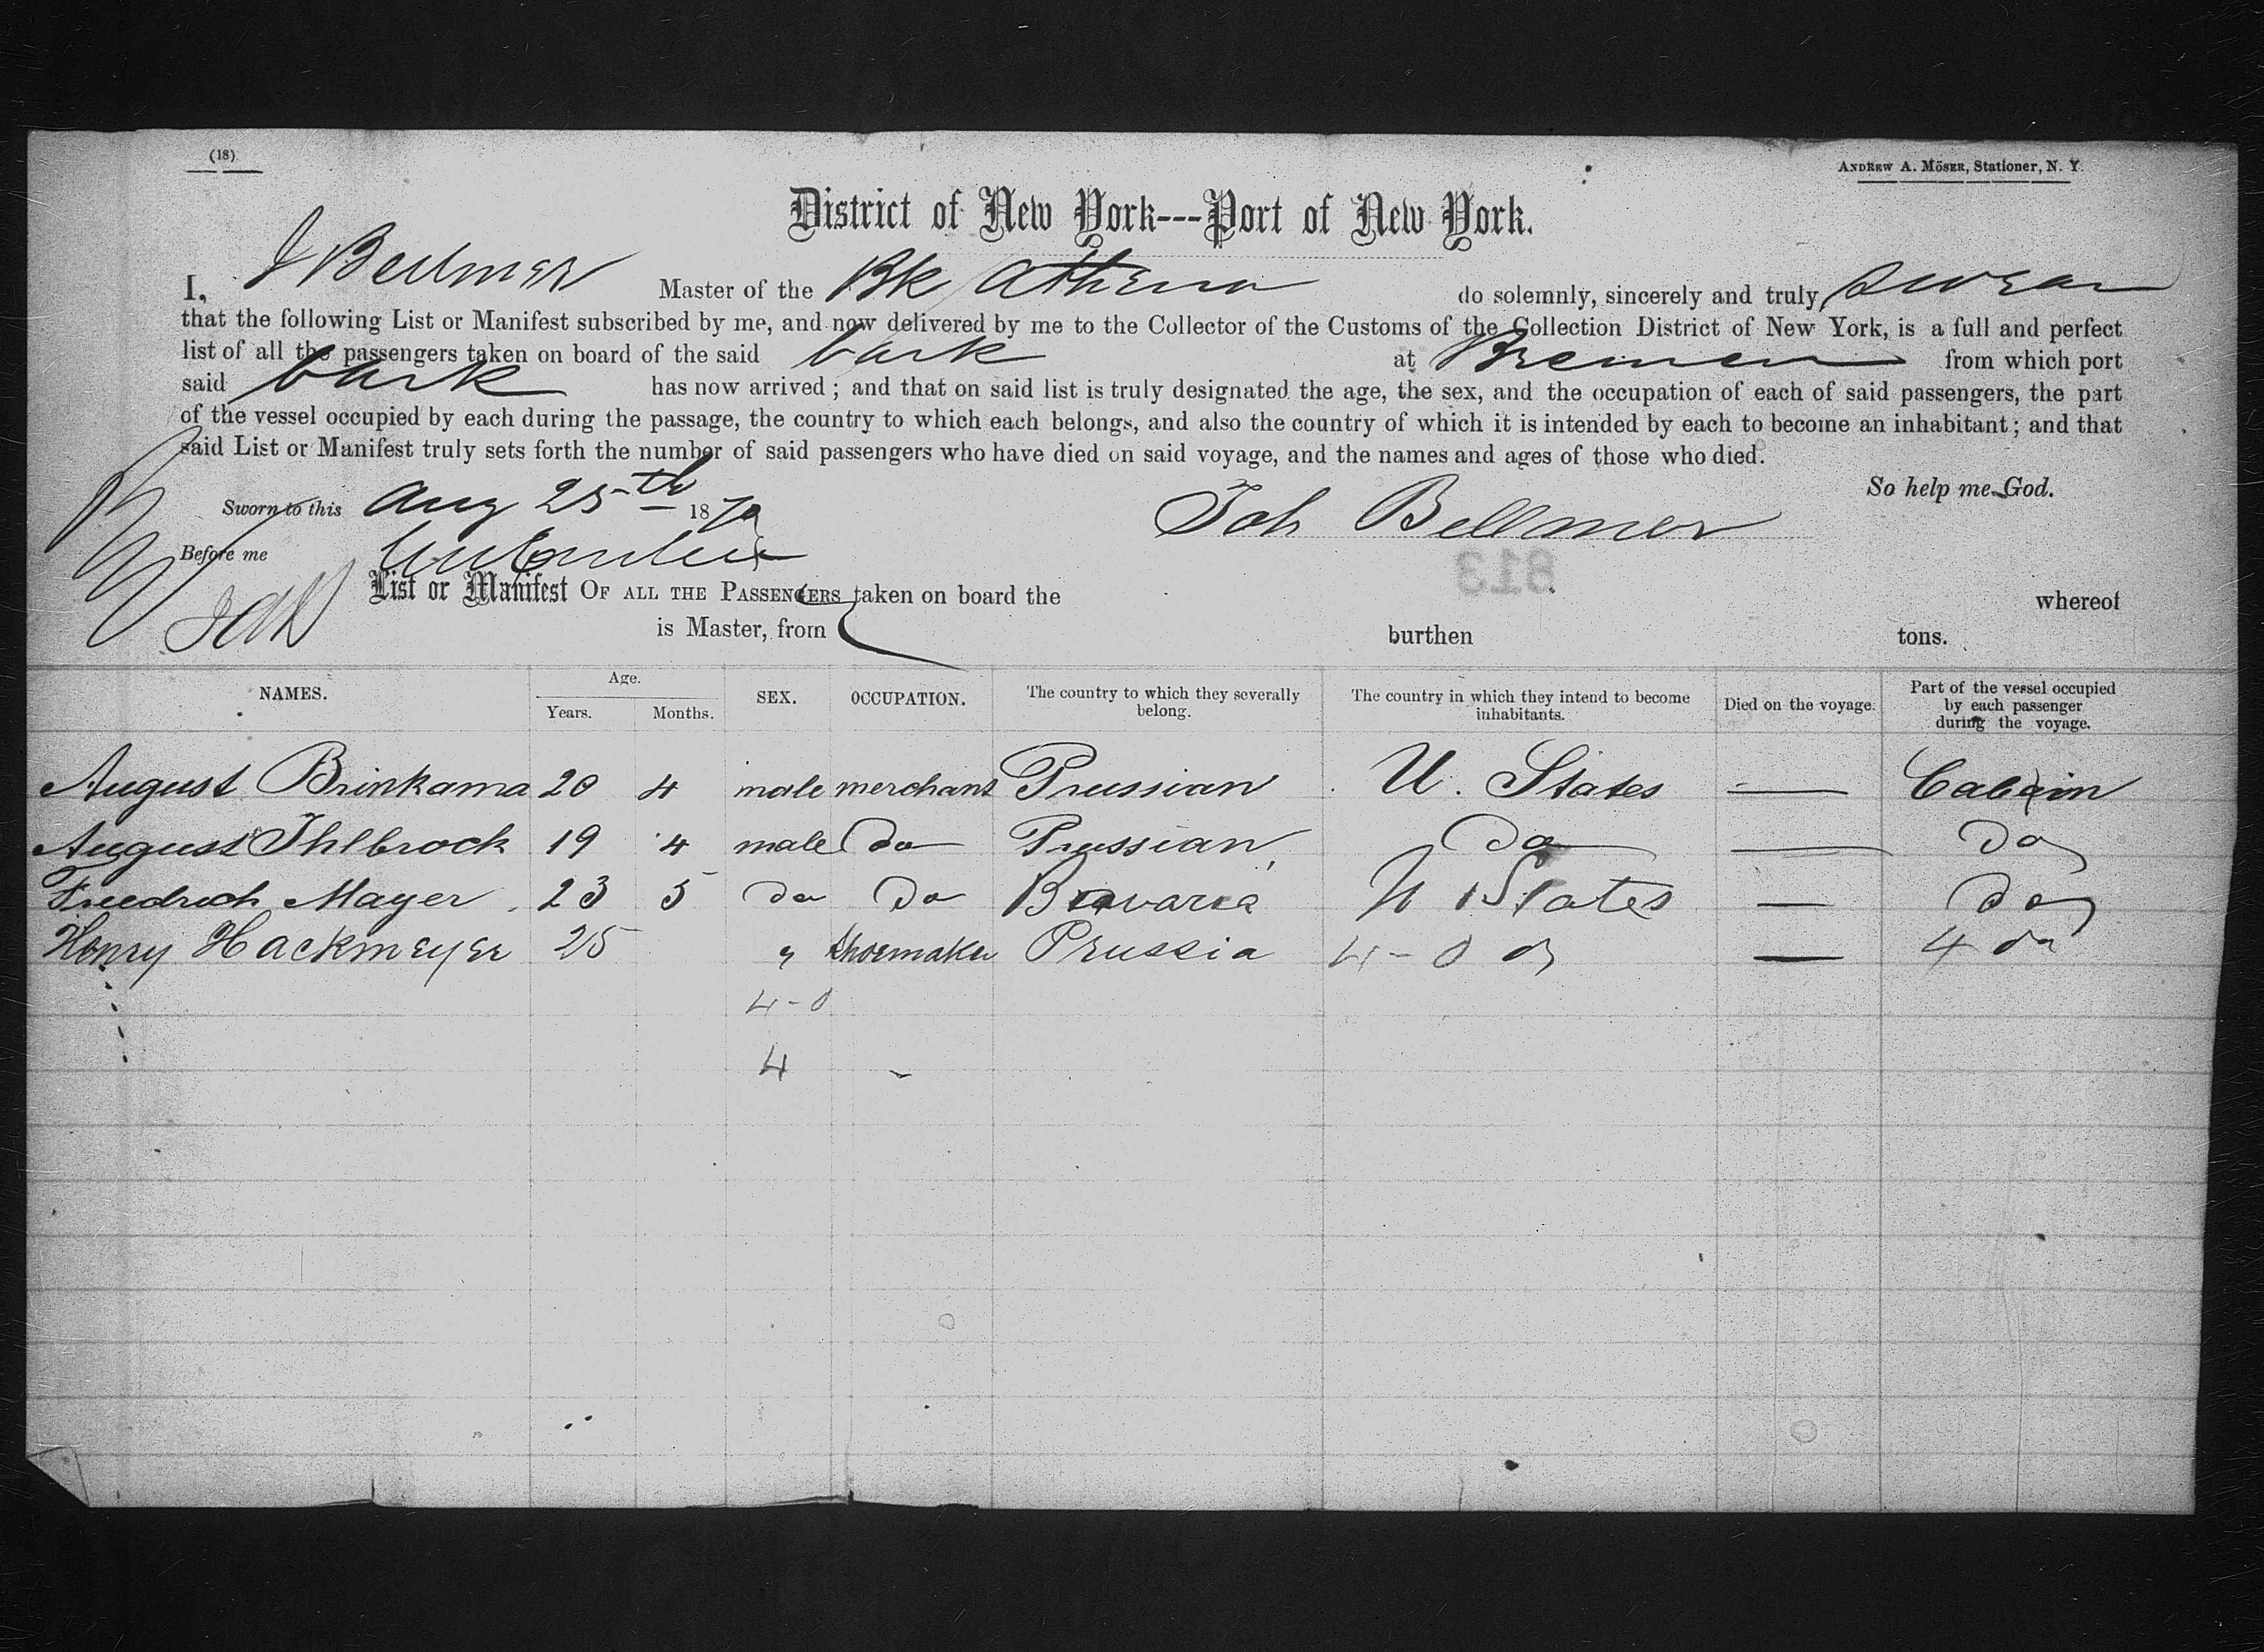 (18)
ANDREW A. MÖSER, Stationer, N. Y.
District of New York---Port of New York.
I, J Bellmer Master of the Bk Athena do solemnly, sincerely and truly swear
that the following List or Manifest subscribed by me, and now delivered by me to the Collector of the Customs of the Collection District of New York, is a full and perfect
list of all the passengers taken on board of the said bark at Bremen from which port
said bark has now arrived; and that on said list is truly designated the age, the sex, and the occupation of each of said passengers, the part
of the vessel occupied by each during the passage, the country to which each belongs, and also the country of which it is intended by each to become an inhabitant; and that
said List or Manifest truly sets forth the number of said passengers who have died on said voyage, and the names and ages of those who died.
So help me God.
Sworn to this Aug 25th 1870 Joh Bellmer
Before me
813
List or Manifest OF ALL THE PASSENGERS taken on board the whereof
is Master, from burthen tons.
NAMES. Age. Years. Months. SEX. OCCUPATION. The country to which they severally belong. The country in which they intend to become inhabitants. Died on the voyage. Part of the vessel occupied by each passenger during the voyage.
August Brinkama 20 4 male merchant Prussian U. States — Cabin
August Ihlbrock 19 4 male Do Prussian Do — Do
Friedrich Mayer 23 5 do Do Bavaria U States — Do
Henry Hackmeyer 25 " Shoemaker Prussia 4-0 — 4 do
4-0
4 -